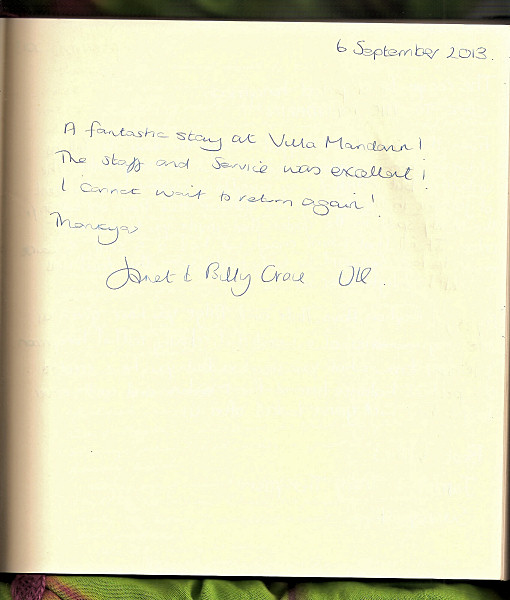 6 September 2013.
A fantastic stay at Villa Mandarin!
The staff and Service was excellent!
I cannot wait to return again!
Thankyou
Janet & Billy UK.